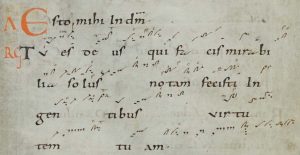 A Esto, mihi In dm̄
RG TV es de us qui fa cis mirabi
lia solus notam fecisti In
gen tibus virtu
tem tu am